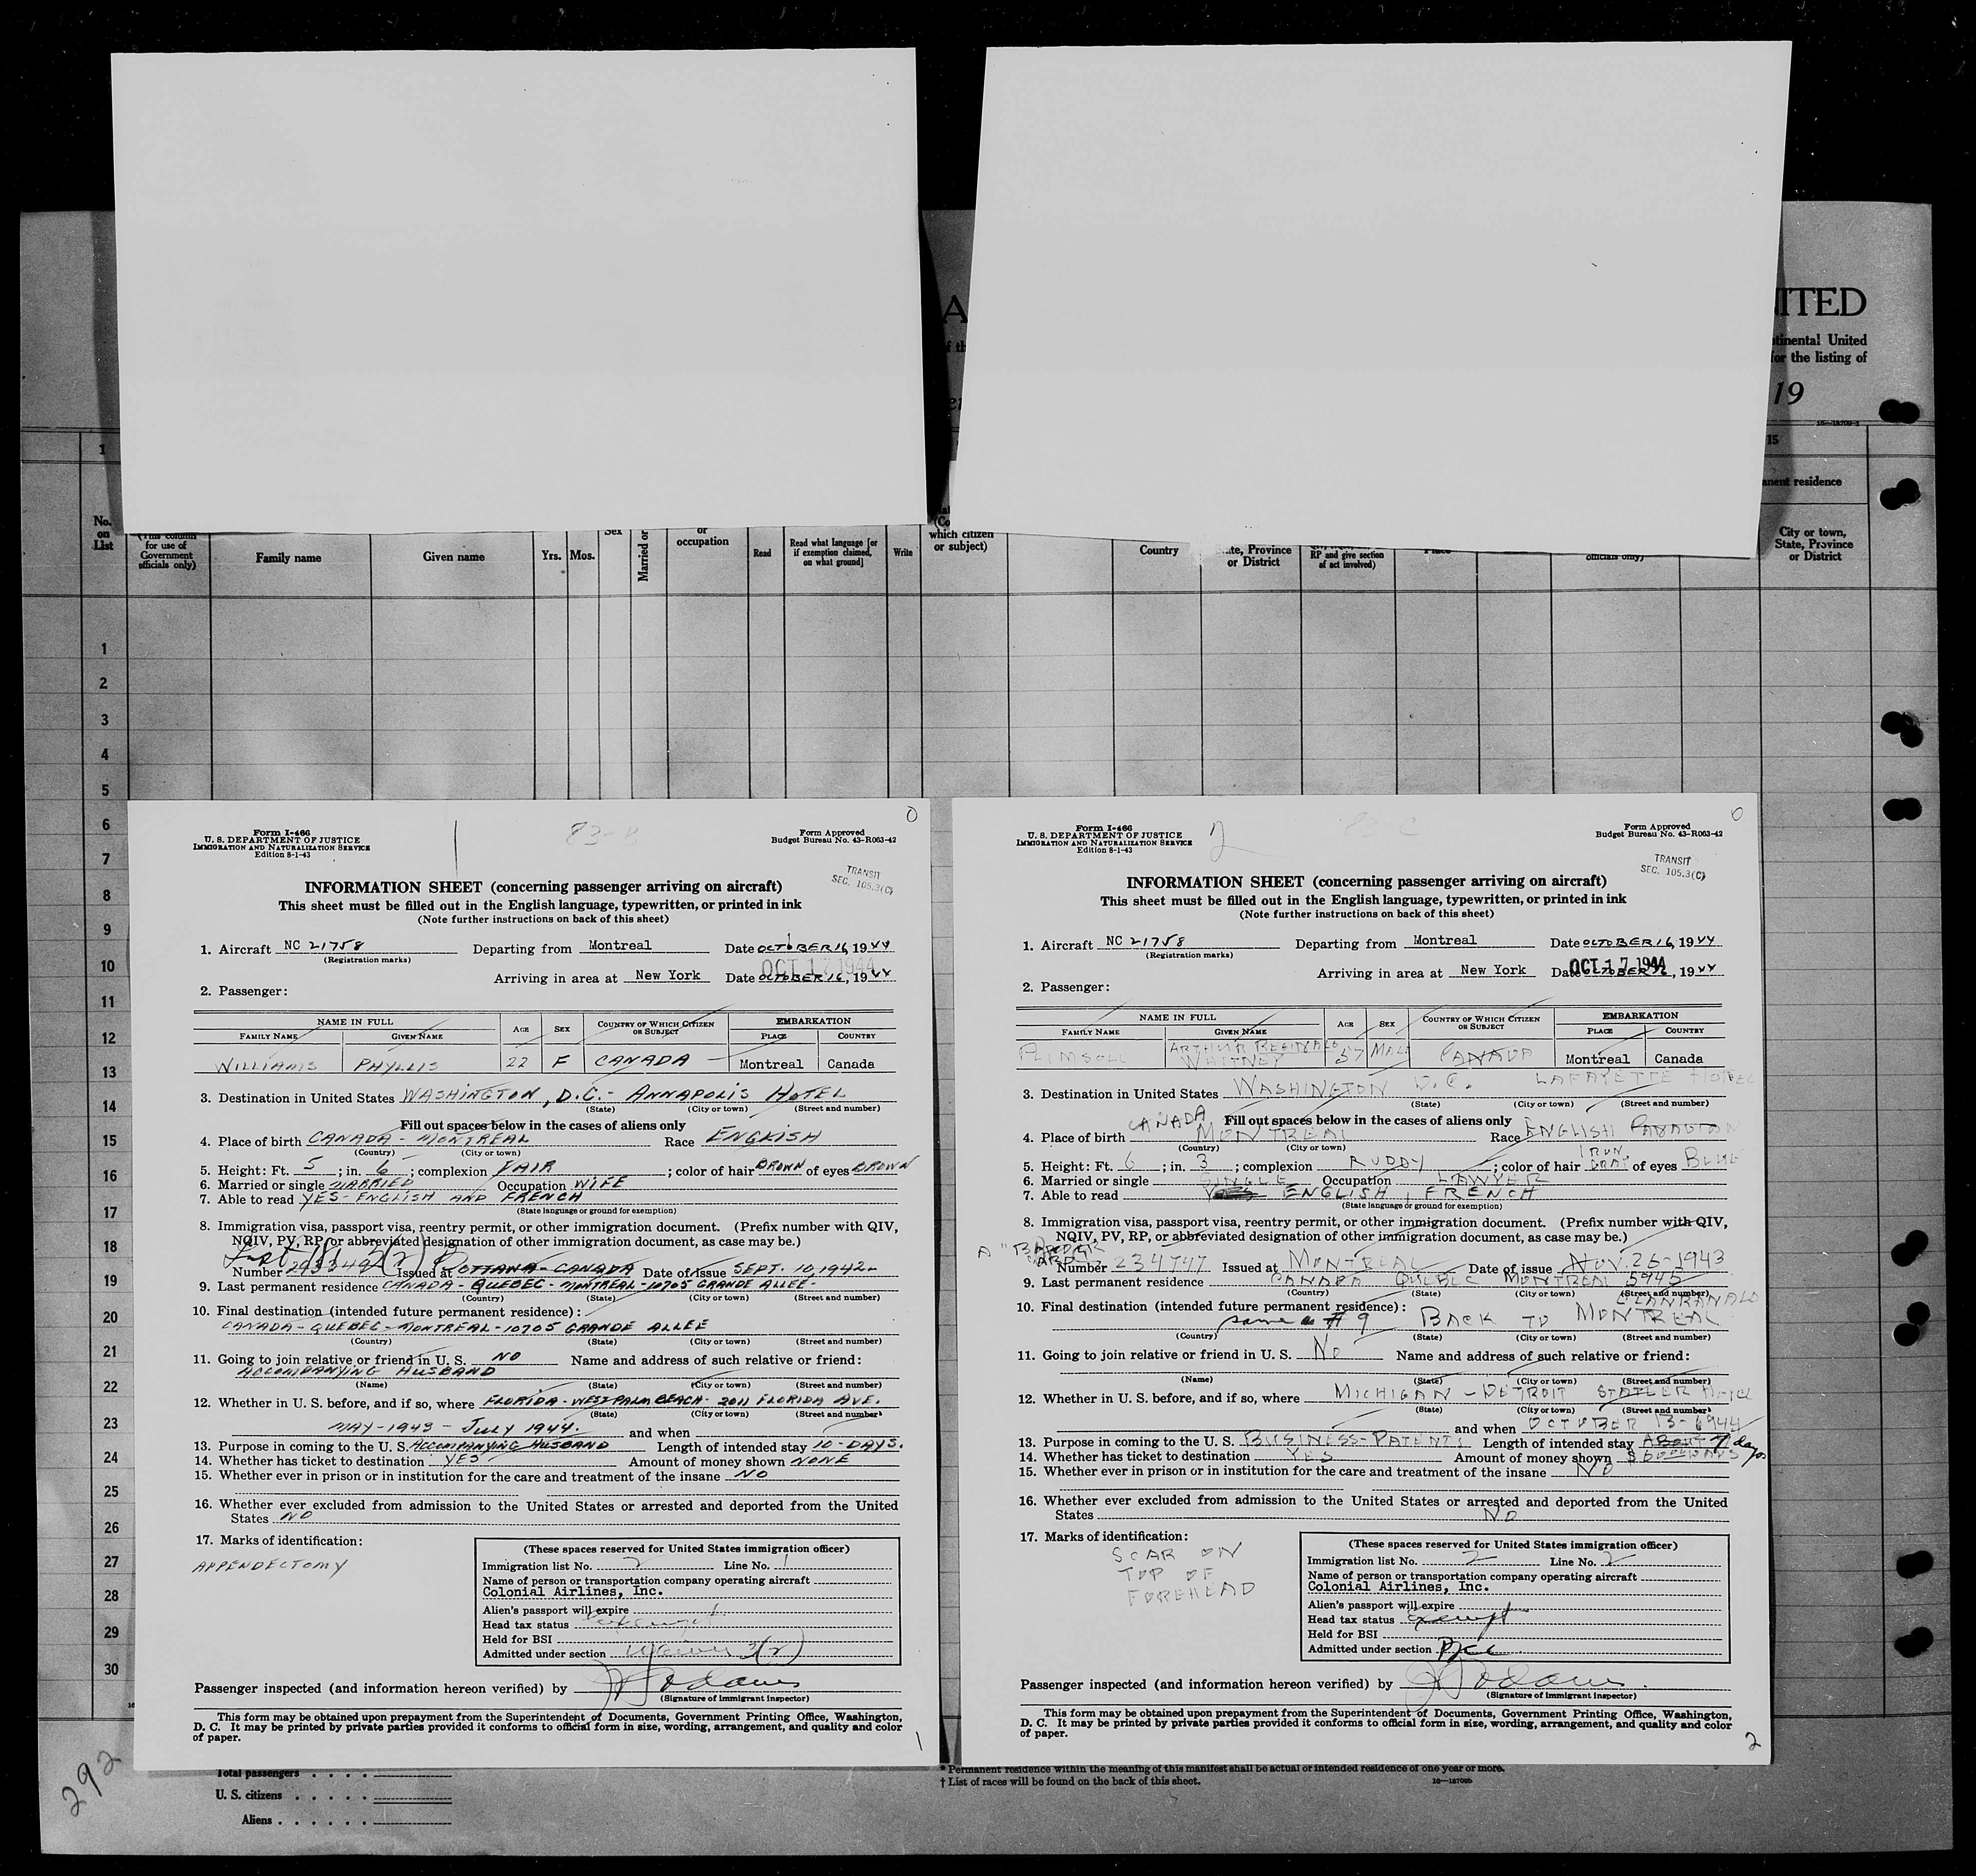 A
ITED
tinental United
for the listing of
19
1
15
anent residence
No.
on
List
for use of
Government
officials only)
Family name
Given name
Yrs.
Mos.
Sex
Married or
or
occupation
Read
Read what language [or
if exemption claimed,
on what ground]
Write
which citizen
or subject)
Country
te, Province
or District
RP and give section
of act involved)
Place
officials only)
City or town,
State, Province
or District
1
2
3
4
5
6
7
8
9
10
11
12
13
14
15
16
17
18
19
20
21
22
23
24
25
26
27
28
29
30
Form I-466
U. S. DEPARTMENT OF JUSTICE
IMMIGRATION AND NATURALIZATION SERVICE
Edition 8-1-43
83-B
0
Form Approved
Budget Bureau No. 43-R063-42
TRANSIT
SEC. 105.3(C)
INFORMATION SHEET (concerning passenger arriving on aircraft)
This sheet must be filled out in the English language, typewritten, or printed in ink
(Note further instructions on back of this sheet)
1. Aircraft NC 21758 Departing from Montreal Date OCTOBER 16, 1944
(Registration marks)
OCT 17 1944
Arriving in area at New York Date OCTOBER 16, 1944
2. Passenger:
NAME IN FULL AGE SEX COUNTRY OF WHICH CITIZEN OR SUBJECT EMBARKATION
FAMILY NAME GIVEN NAME PLACE COUNTRY
WILLIAMS PHYLLIS 22 F CANADA Montreal Canada
3. Destination in United States WASHINGTON, D.C. - ANNAPOLIS HOTEL
(State) (City or town) (Street and number)
Fill out spaces below in the cases of aliens only
4. Place of birth CANADA - MONTREAL Race ENGLISH
(Country) (City or town)
5. Height: Ft. 5; in. 6; complexion FAIR; color of hair BROWN of eyes BROWN
6. Married or single MARRIED Occupation WIFE
7. Able to read YES - ENGLISH AND FRENCH
(State language or ground for exemption)
8. Immigration visa, passport visa, reentry permit, or other immigration document. (Prefix number with QIV,
NQIV, PV, RP, or abbreviated designation of other immigration document, as case may be.)
Number Issued at OTTAWA - CANADA Date of issue SEPT. 10, 1942
9. Last permanent residence CANADA - QUEBEC - MONTREAL - 10705 GRANDE ALLEE -
(Country) (State) (City or town) (Street and number)
10. Final destination (intended future permanent residence):
CANADA - QUEBEC - MONTREAL - 10705 GRANDE ALLEE
(Country) (State) (City or town) (Street and number)
11. Going to join relative or friend in U. S. NO Name and address of such relative or friend:
ACCOMPANYING HUSBAND
(Name) (State) (City or town) (Street and number)
12. Whether in U. S. before, and if so, where FLORIDA - WEST PALM BEACH - 2011 FLORIDA AVE.
(State) (City or town) (Street and number)
MAY - 1943 - JULY 1944. and when
13. Purpose in coming to the U. S. ACCOMPANYING HUSBAND Length of intended stay 10 - DAYS.
14. Whether has ticket to destination YES Amount of money shown NONE
15. Whether ever in prison or in institution for the care and treatment of the insane NO
16. Whether ever excluded from admission to the United States or arrested and deported from the United
States NO
17. Marks of identification:
APPENDECTOMY
(These spaces reserved for United States immigration officer)
Immigration list No. 2 Line No. 1
Name of person or transportation company operating aircraft
Colonial Airlines, Inc.
Alien's passport will expire
Head tax status exempt
Held for BSI
Admitted under section 3(2)
Passenger inspected (and information hereon verified) by
(Signature of immigrant inspector)
This form may be obtained upon prepayment from the Superintendent of Documents, Government Printing Office, Washington,
D. C. It may be printed by private parties provided it conforms to official form in size, wording, arrangement, and quality and color
of paper.
1
Form I-466
U. S. DEPARTMENT OF JUSTICE
IMMIGRATION AND NATURALIZATION SERVICE
Edition 8-1-43
2
83-C
0
Form Approved
Budget Bureau No. 43-R063-42
TRANSIT
SEC. 105.3(C)
INFORMATION SHEET (concerning passenger arriving on aircraft)
This sheet must be filled out in the English language, typewritten, or printed in ink
(Note further instructions on back of this sheet)
1. Aircraft NC 21758 Departing from Montreal Date OCTOBER 16, 1944
(Registration marks)
OCT 17 1944
Arriving in area at New York Date OCTOBER 16, 1944
2. Passenger:
NAME IN FULL AGE SEX COUNTRY OF WHICH CITIZEN OR SUBJECT EMBARKATION
FAMILY NAME GIVEN NAME PLACE COUNTRY
PLIMSOLL ARTHUR REGINALD WHITNEY 57 MALE CANADA Montreal Canada
3. Destination in United States WASHINGTON D.C. LAFAYETTE HOTEL
(State) (City or town) (Street and number)
Fill out spaces below in the cases of aliens only
4. Place of birth CANADA MONTREAL Race ENGLISH
(Country) (City or town)
5. Height: Ft. 6; in. 3; complexion RUDDY; color of hair IRON GRAY of eyes BLUE
6. Married or single SINGLE Occupation LAWYER
7. Able to read ENGLISH, FRENCH
(State language or ground for exemption)
8. Immigration visa, passport visa, reentry permit, or other immigration document. (Prefix number with QIV,
NQIV, PV, RP, or abbreviated designation of other immigration document, as case may be.)
Number 234747 Issued at MONTREAL Date of issue NOV. 26 - 1943
9. Last permanent residence CANADA QUEBEC MONTREAL 5945
(Country) (State) (City or town) (Street and number)
CLANRANALD
10. Final destination (intended future permanent residence):
same as # 9 BACK TO MONTREAL
(Country) (State) (City or town) (Street and number)
11. Going to join relative or friend in U. S. NO Name and address of such relative or friend:
(Name) (State) (City or town) (Street and number)
12. Whether in U. S. before, and if so, where MICHIGAN - DETROIT STATLER HOTEL
(State) (City or town) (Street and number)
and when OCTOBER 13 - 1944
13. Purpose in coming to the U. S. BUSINESS - PATENTS Length of intended stay ABOUT 7 days
14. Whether has ticket to destination YES Amount of money shown
15. Whether ever in prison or in institution for the care and treatment of the insane NO
16. Whether ever excluded from admission to the United States or arrested and deported from the United
States NO
17. Marks of identification:
SCAR ON
TOP OF
FOREHEAD
(These spaces reserved for United States immigration officer)
Immigration list No. 2 Line No. 2
Name of person or transportation company operating aircraft
Colonial Airlines, Inc.
Alien's passport will expire
Head tax status exempt
Held for BSI
Admitted under section
Passenger inspected (and information hereon verified) by
(Signature of immigrant inspector)
This form may be obtained upon prepayment from the Superintendent of Documents, Government Printing Office, Washington,
D. C. It may be printed by private parties provided it conforms to official form in size, wording, arrangement, and quality and color
of paper.
2
292
Total passengers . . . .
U. S. citizens . . . . .
Aliens . . . . . .
* Permanent residence within the meaning of this manifest shall be actual or intended residence of one year or more.
† List of races will be found on the back of this sheet.